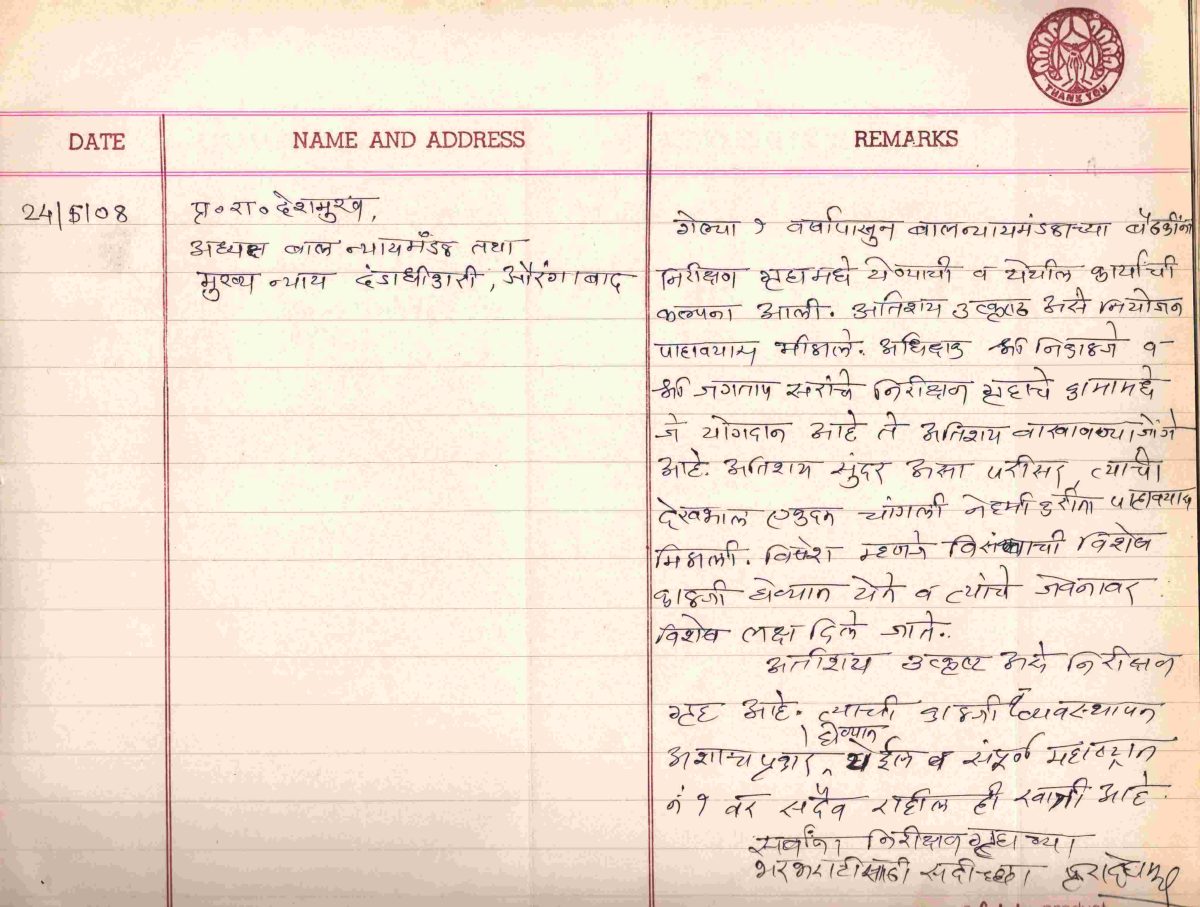 THANK YOU
DATE NAME AND ADDRESS REMARKS
24/5/08
प्र॰ रा॰ देशमुख,
अध्यक्ष बाल न्यायमंडळ तथा
मुख्य न्याय दंडाधीकारी, औरंगाबाद
गेल्या १ वर्षापासुन बालन्यायमंडळाच्या बैठकींना
निरीक्षण गृहामधे येण्याची व येथील कार्याची
कल्पना आली. अतिशय उत्कृष्ठ असे नियोजन
पाहावयास मीळाले. अधिक्षक श्री निकाळजे व
श्री जगताप सरांचे निरीक्षन गृहाचे कामामधे
जे योगदान आहे ते अतिशय वाखाणण्याजोगे
आहे. अतिशय सुंदर असा परीसर, त्याची
देखभाल एकुदम चांगली नेहमी करीता पाहावयास
मिळाली. विषेश म्हणजे ची विशेष
काळजी घेण्यात येते व त्यांचे जेवनावर
विशेष लक्ष दिले जाते.
अतीशय उत्कृष्ट असे निरीक्षन
गृह आहे. त्याची काळजी व व्यवस्थापन
अशाच प्रकारे घेण्यात येईल व संपूर्ण महाराष्ट्रात
नं १ वर सदैव राहील ही खात्री आहे.
सर्वांना निरीक्षण गृहाच्या
भरभराटीसाठी सदीच्छा